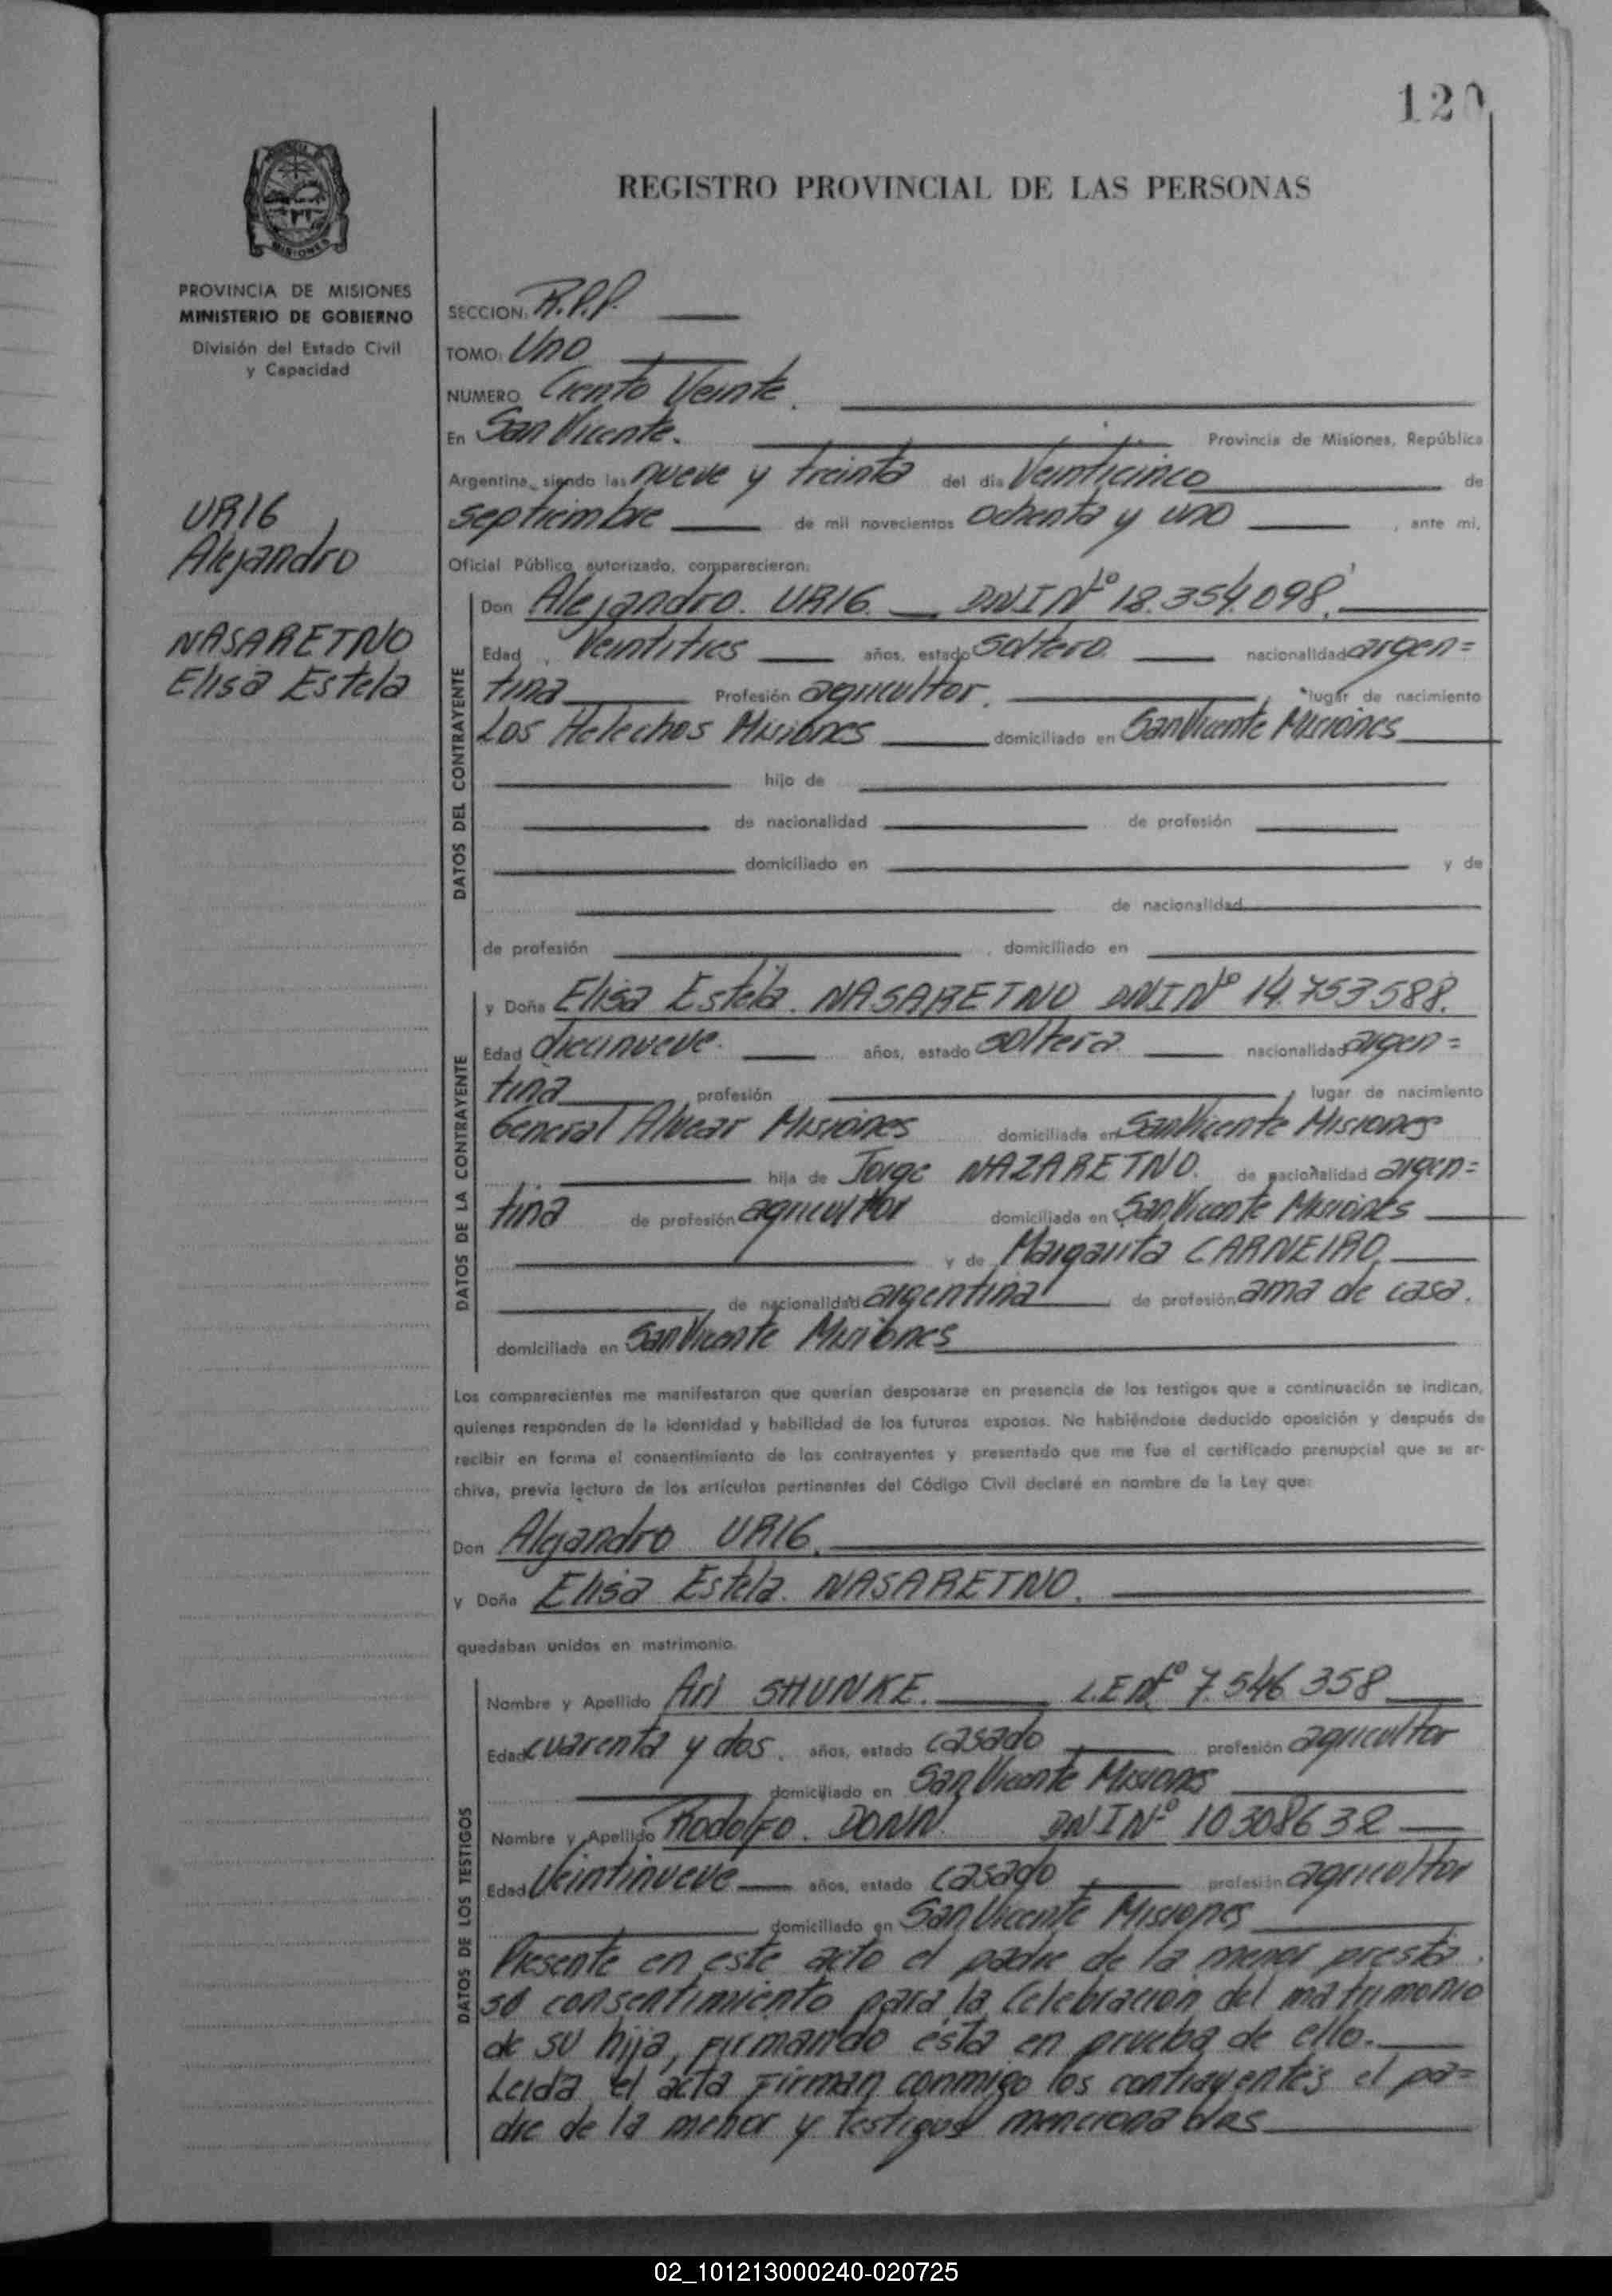 120
REGISTRO PROVINCIAL DE LAS PERSONAS
MISIONES
PROVINCIA DE MISIONES
MINISTERIO DE GOBIERNO
División del Estado Civil
y Capacidad
URIG
Alejandro
NASARETNO
Elisa Estela
SECCION: R.P.P.
TOMO: Uno
NUMERO Ciento Veinte.
En San Vicente. Provincia de Misiones, República
Argentina, siendo las nueve y treinta del día Veinticinco de
septiembre de mil novecientos ochenta y uno, ante mi,
Oficial Público autorizado, comparecieron:
DATOS DEL CONTRAYENTE
Don Alejandro. URIG. DNI Nº 18.354.098.
Edad, Veintitres años, estado Soltero. nacionalidad argen=
tina Profesión agricultor. lugar de nacimiento
Los Helechos Misiones domiciliado en San Vicente Misiones
hijo de
de nacionalidad de profesión
domiciliado en y de
de nacionalidad
de profesión, domiciliado en
DATOS DE LA CONTRAYENTE
y Doña Elisa Estela. NASARETNO DNI Nº 14.753.588.
Edad diecinueve. años, estado soltera nacionalidad argen=
tina profesión, lugar de nacimiento
General Alvear Misiones domiciliada en San Vicente Misiones
hija de Jorge NAZARETNO. de nacionalidad argen=
tina de profesión agricultor domiciliada en San Vicente Misiones
y de Margarita CARNEIRO
de nacionalidad argentina de profesión ama de casa.
domiciliada en San Vicente Misiones
Los comparecientes me manifestaron que querían desposarse en presencia de los testigos que a continuación se indican,
quienes responden de la identidad y habilidad de los futuros esposos. No habiéndose deducido oposición y después de
recibir en forma el consentimiento de los contrayentes y presentado que me fue el certificado prenupcial que se ar-
chiva, previa lectura de los artículos pertinentes del Código Civil declaré en nombre de la Ley que:
Don Alejandro URIG.
y Doña Elisa Estela. NASARETNO.
quedaban unidos en matrimonio.
DATOS DE LOS TESTIGOS
Nombre y Apellido Ari SHUNKE. L.E Nº 7.546.358
Edad cuarenta y dos. años, estado casado profesión agricultor
domiciliado en San Vicente Misiones
Nombre y Apellido Rodolfo. DONN DNI Nº 10308632
Edad Veintinueve años, estado casado profesión agricultor
domiciliado en San Vicente Misiones
Presente en este acto el padre de la menor presta
su consentimiento para la Celebracion del matrimonio
de su hija, firmando ésta en prueba de ello.
Leida el acta Firman conmigo los contrayentes el pa=
dre de la menor y testigos mencionados
02_101213000240-020725